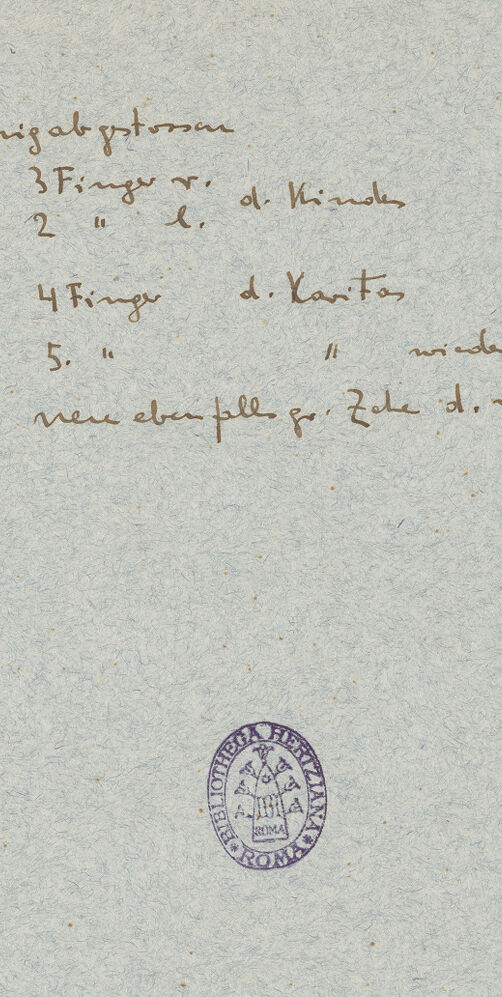 abgestossen
3 Finger r.
d. Kindes
2 " l.
4 Finger d. Karitas
5. " "
ebenfalls gr. Zehe d.
BIBLIOTHECA HERTZIANA
ROMA
ROMA